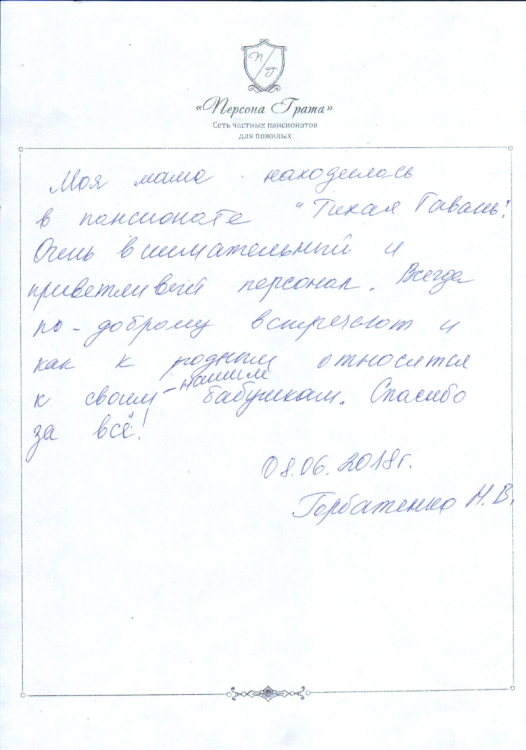 П Г
«Персона Грата»
Сеть частных пансионатов
для пожилых
Моя мама находилась
в пансионате "Тихая Гавань".
Очень внимательный и
приветливый персонал. Всегда
по-доброму встречают и
как к родным относятся
к своим - нашим бабушкам. Спасибо
за всё!
08.06.2018г.
Горбатенко Н.В.